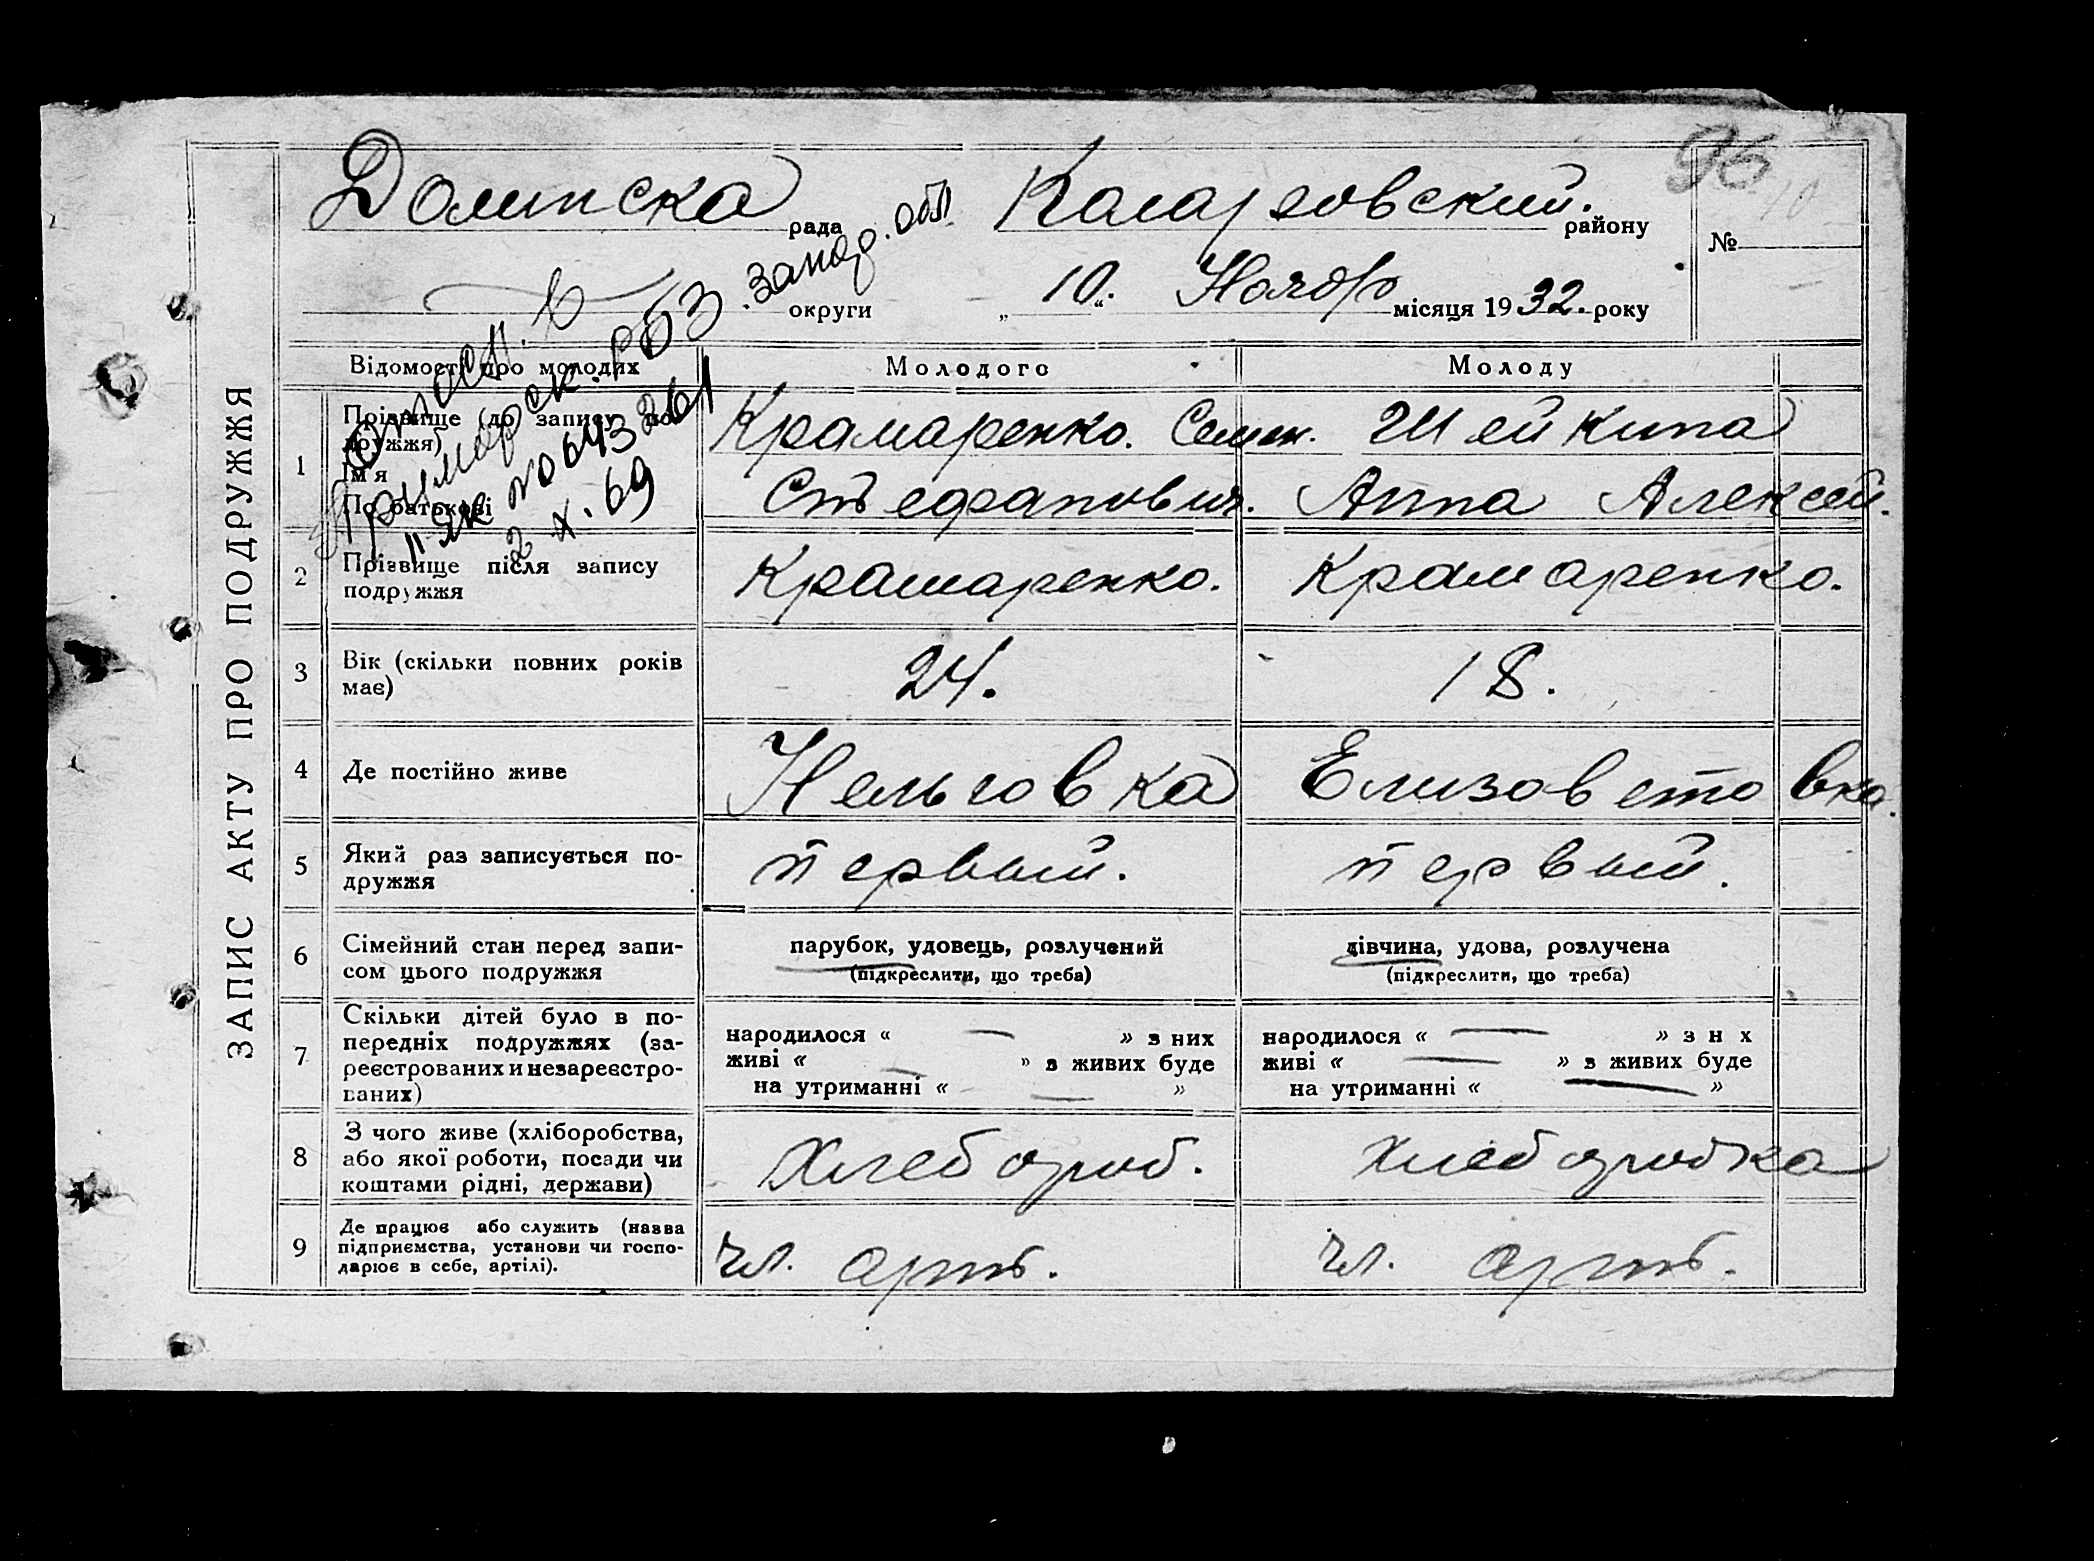 96
10
Долинска рада Коларовский. району
№
округи „ 10. “ Ноябр місяця 1932. року
запор. обл
ЗАПИС АКТУ ПРО ПОДРУЖЖЯ
Відомості про молодих Молодого Молоду
1 Прізвище (до запису по-
дружжя)
Ім'я
По батькові
Крамаренко. Семен. Шейкина
Стъефанович. Анна Алексей.
Приморск. РБЗ
ЯК № 0643261
2 X. 69
2 Прізвище після запису
подружжя
Крамаренко. Крамаренко.
3 Вік (скільки повних років
має)
24. 18.
4 Де постійно живе Нельговка Елизовстовка.
5 Який раз записується по-
дружжя
первый. первый.
6 Сімейний стан перед запи-
сом цього подружжя
парубок, удовець, розлучений дівчина, удова, розлучена
(підкреслити, що треба) (підкреслити, що треба)
7 Скільки дітей було в по-
передніх подружжях (за-
реєстрованих и незареєстро-
ваних)
народилося « — » з них народилося « — » з н х
живі « — » в живих буде живі « — » в живих буде
на утриманні « — » на утриманні « — »
8 З чого живе (хліборобства,
або якої роботи, посади чи
коштами рідні, держави)
Хлебороб. Хлеборобка
9 Де працює або служить (назва
підприємства, установи чи госпо-
дарює в себе, артілі).
чл. арть. чл. арть.